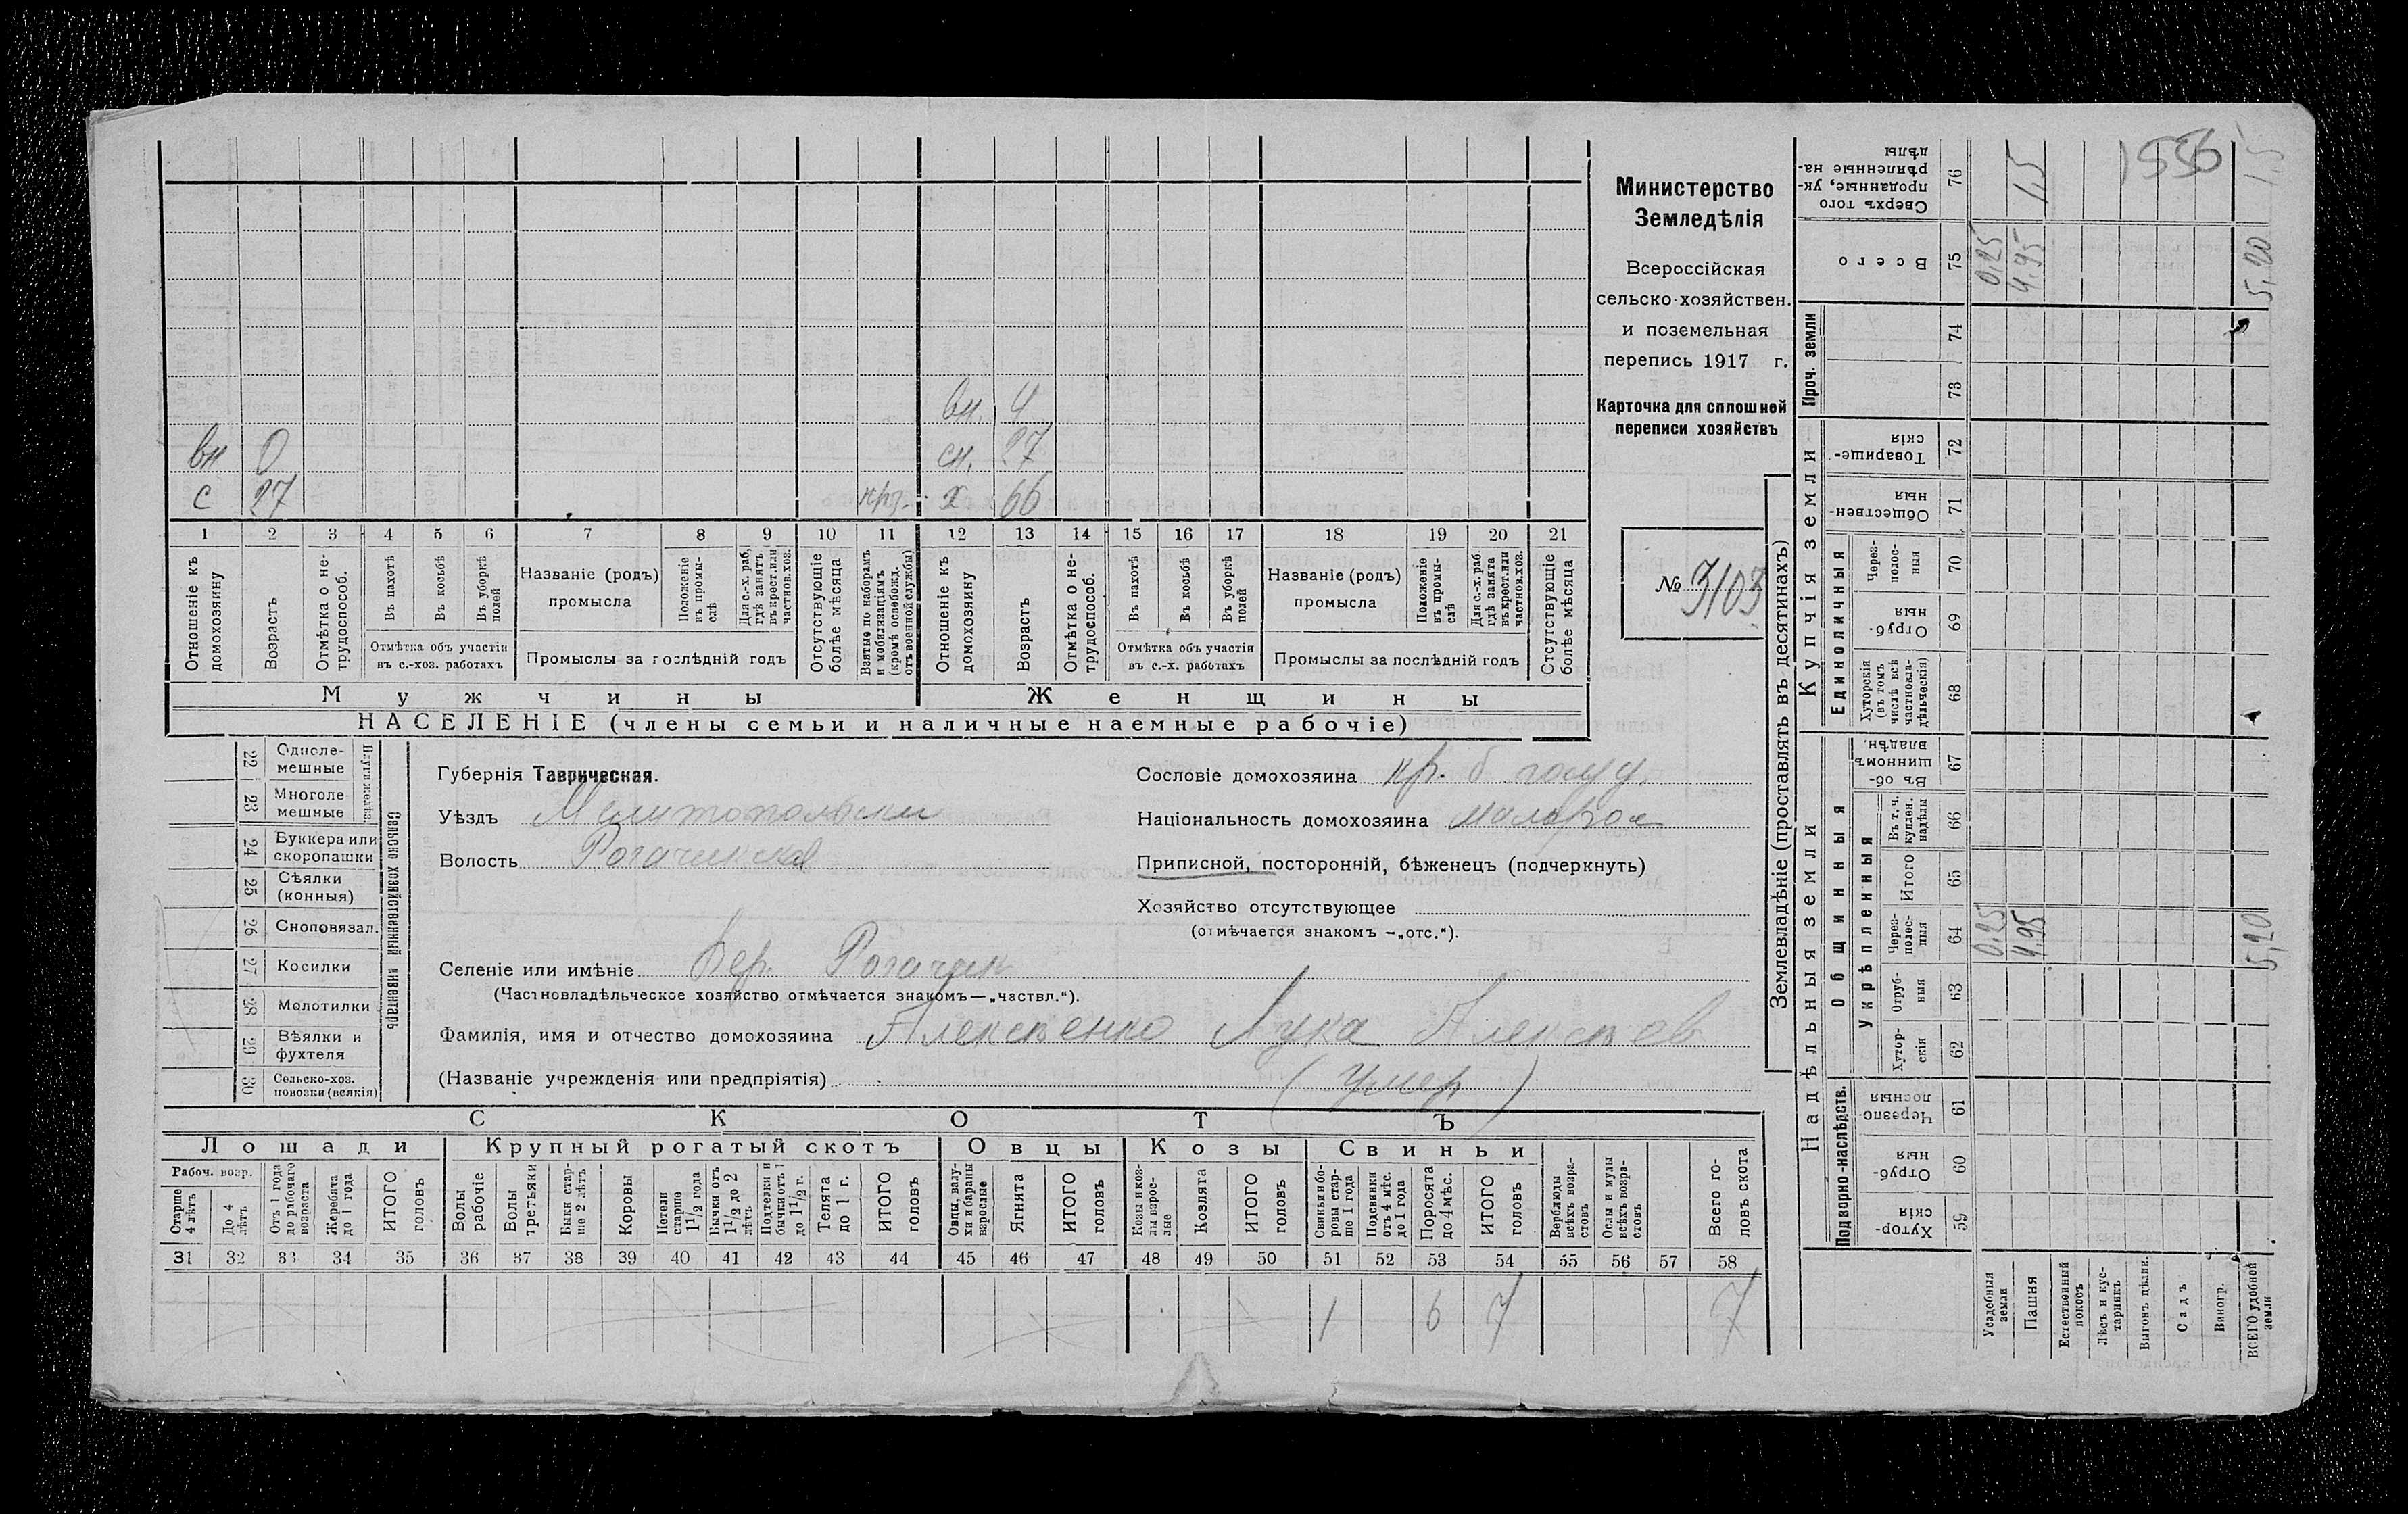 вн. 4
вн 0 сн. 27
с 27 нрз. х 66
1 2 3 4 5 6 7 8 9 10 11 12 13 14 15 16 17 18 19 20 21
Отношеніе къ домохозяину
Возрастъ
Отмѣтка о не-трудоспособ.
Въ пахотѣ
Въ косьбѣ
Въ уборкѣ полей
Отмѣтка объ участіи
въ с.-хоз. работахъ
Названіе (родъ)
промысла
Положеніе въ промы-слѣ
Для с.-х. раб, гдѣ занятъ въ крест. или частнов. хоз.
Промыслы за послѣдній годъ
Отсутствующіе болѣе мѣсяца
Взятые по наборамъ и мобилизаціямъ (кромѣ освобожд. отъ военной службы)
Отношеніе къ домохозяину
Возрастъ
Отмѣтка о не-трудоспособ.
Въ пахотѣ
Въ косьбѣ
Въ уборкѣ полей
Отмѣтка объ участіи
въ с.-х. работахъ
Названіе (родъ)
промысла
Положеніе въ промы-слѣ
Для с.-х. раб. гдѣ занята въ крест. или частнов. хоз.
Промыслы за послѣдній годъ
Отсутствующіе болѣе мѣсяца
Мужчины Женщины
НАСЕЛЕНІЕ (члены семьи и наличные наемные рабочіе)
Министерство
Земледѣлія
Всероссійская
сельско-хозяйствен.
и поземельная
перепись 1917 г.
Карточка для сплошной
переписи хозяйствъ
№ 3103
Сельско хозяйственный инвентарь
Плуги желѣз.
22 Одноле-мешные
23 Многоле-мешные
24 Буккера или скоропашки
25 Сѣялки (конныя)
26 Сноповязал.
27 Косилки
28 Молотилки
29 Вѣялки и фухтеля
30 Сельско-хоз. повозки (всякія)
Губернія Таврическая.
Уѣздъ Мелитопольски
Волость Рогачикская
Селеніе или имѣніе Вер. Рогачик
(Частновладѣльческое хозяйство отмѣчается знакомъ—„частвл.“).
Фамилія, имя и отчество домохозяина Алексѣенко Лука Алексѣев
(Названіе учрежденія или предпріятія) (умер)
Сословіе домохозяина кр. б
Національность домохозяина малорос
Приписной, посторонній, бѣженецъ (подчеркнуть)
Хозяйство отсутствующее
(отмѣчается знакомъ —„отс.“).
СКОТЪ
Лошади Крупный рогатый скотъ Овцы Козы Свиньи
Рабоч. возр.
Старше 4 лѣтъ
До 4 лѣтъ
Отъ 1 года до рабочаго возраста
Жеребята до 1 года
ИТОГО головъ
Волы рабочіе
Волы третьяки
Быки стар-ше 2 лѣтъ
Коровы
Нетели старше 1½ года
Бычки отъ 1½ до 2 лѣтъ
Подтелки и бычки отъ 1 до 1½ г.
Телята до 1 г.
ИТОГО головъ
Овцы, валу-хи и бараны взрослые
Ягнята
ИТОГО головъ
Козы и коз-лы взрос-лые
Козлята
ИТОГО головъ
Свиньи и бо-ровы стар-ше 1 года
Подсвинки отъ 4 мѣс. до 1 года
Поросята до 4 мѣс.
ИТОГО головъ
Верблюды всѣхъ возра-стовъ
Ослы и мулы всѣхъ возра-стовъ
Всего го-ловъ скота
31 32 33 34 35 36 37 38 39 40 41 42 43 44 45 46 47 48 49 50 51 52 53 54 55 56 57 58
1 6 7 7
Землевладѣніе (проставлять въ десятинахъ)
Надѣльныя земли Купчія земли Проч. земли
Подворно-наслѣдств.
Общинныя
Укрѣпленныя
Единоличныя
Хутор-скія 59
Отруб-ныя 60
Черезпо-лосныя 61
Хутор-скія 62
Отруб-ныя 63
Через-полос-ныя 64
Итого 65
Въ т. ч. куплен. надѣлы 66
Въ об-щинномъ владѣн. 67
Хуторскія (въ томъ числѣ всѣ частновла-дѣльческія) 68
Отруб-ныя 69
Через-полос-ныя 70
Обществен-ныя 71
Товарище-скія 72
73
74
Всего 75
Сверхъ того проданные, ук-рѣпленные на-дѣлы 76
Усадебныя земли 0,25 0,25
Пашня 4,95 4,95 1,5
Естественный покосъ
Лѣсъ и кус-тарникъ
Выгонъ цѣлин.
Садъ
Виногр.
ВСЕГО удобной земли 5,20 5,20 1,5
1556